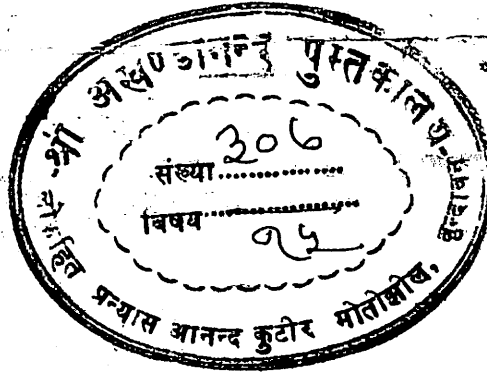 श्री अखण्डानन्द पुस्तकालय
संख्या ३०७
विषय १५
लोकहित प्रन्यास आनन्द कुटीर मोतीझील, वृन्दावन